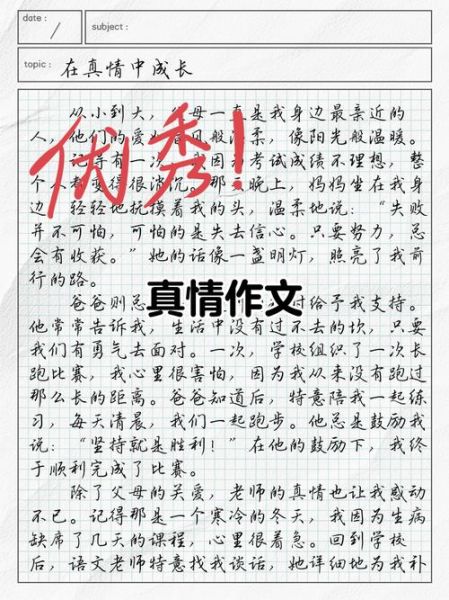 date :
subject :
topic : 在真情中成长
优秀!
从小到大,父母一直是我身边最亲近的
人,他们的爱如春风般温柔,像阳光般温暖。
记得有一次,我因为考试成绩不理想,整
个人都变得很消沉。那天晚上,妈妈坐在我身
边,轻轻地抚摸着我的头,温柔地说:“失败
并不可怕,可怕的是失去信心。只要努力,总
会有收获。”她的话像一盏明灯,照亮了我前
行的路。
真情作文
爸爸则总 时给予我支持。
他常常告诉我,生活中没有过不去的坎,只要
我们有勇气去面对。一次,学校组织了一次长
跑比赛,我心里很害怕,因为我从来没有跑过
那么长的距离。爸爸知道后,特意陪我一起练
习,每天清晨,我们一起跑步。他总是鼓励我
说:“坚持就是胜利!”在他的鼓励下,我终
于顺利完成了比赛。
除了父母的关爱,老师的真情也让我感动
不已。记得那是一个寒冷的冬天,我因为生病
缺席了几天的课程,心里很着急。回到学校
后,语文老师特意找我谈话,她详细地为我补